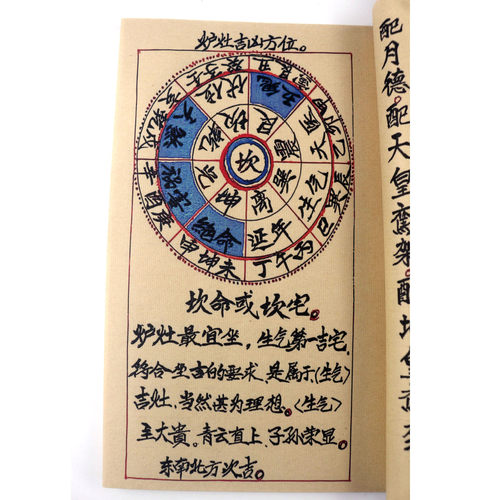 炉灶吉凶方位。
坎
坎 艮 震 巽 离 坤 兑 乾
伏位 五鬼 天医 生气 延年 绝命 祸害 六煞
丁午丙
未坤申
庚酉辛
坎命或坎宅。
炉灶最宜坐，生气第一吉宅，
符合坐吉的要求，是属于〈生气〉
吉灶，当然甚为理想。〈生气〉
主大貴。青云直上，子孙荣显。
东南北方次吉。
配月德。配天皇鸾架。配地皇